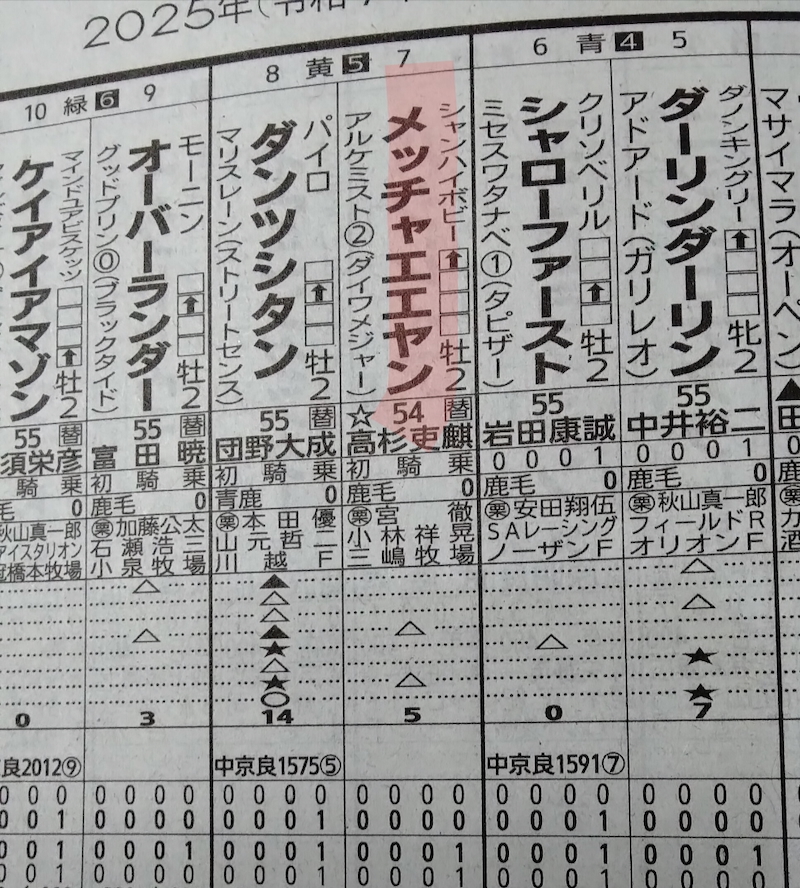 2025年(令和
5
4
青
6
7
5
黄
8
9
6
緑
10
マサイマラ(オーペン)
ダノンキングリー
牝2
ダーリンダーリン
アドアード(ガリレオ)
55
中井裕二
0 0 0 1
鹿毛 0
栗秋山真一郎
フィールドR
オリオンF
7
クリソベリル
牡2
シャローファースト
ミセスワタナベ①(タピザー)
55
岩田康誠
0 0 0 1
鹿毛 0
栗安田翔伍
SAレーシング
ノーザンF
0
中京良1591⑦
シャンハイボビー
牡2
メッチャエエヤン
アルケミスト②(ダイワメジャー)
☆ 54 替
高杉吏麒
初騎乗
鹿毛 0
栗宮 徹
小林祥晃
三嶋牧場
5
パイロ
牡2
ダンツシタン
マリスレーン(ストリートセンス)
55 替
団野大成
初騎乗
青鹿 0
栗本田優
山元哲二
川越F
14
中京良1575⑤
モーニン
牡2
オーバーランダー
グッドプリン⓪(ブラックタイド)
55 替
富田暁
初騎乗
鹿毛 0
栗加藤公太
石瀬浩三
小泉牧場
3
マインドユアビスケッツ
牡2
ケイアイアマゾン
55 替
須栄彦
騎乗
毛 0
秋山真一郎
アイスタリオン
冠橋本牧場
0
良2012⑨
0 0 0 0 0 0 0 0 0 0 0 0 0 0 0 0 0 0 0 0 0 0 0
0 0 1 0 0 0 0 0 0 0 1 0 0 0 0 0 0 0 1 0 0 0 0
0 0 1 0 0 0 1 0 0 0 1 0 0 0 1 0 0 0 1 0 0 0 1